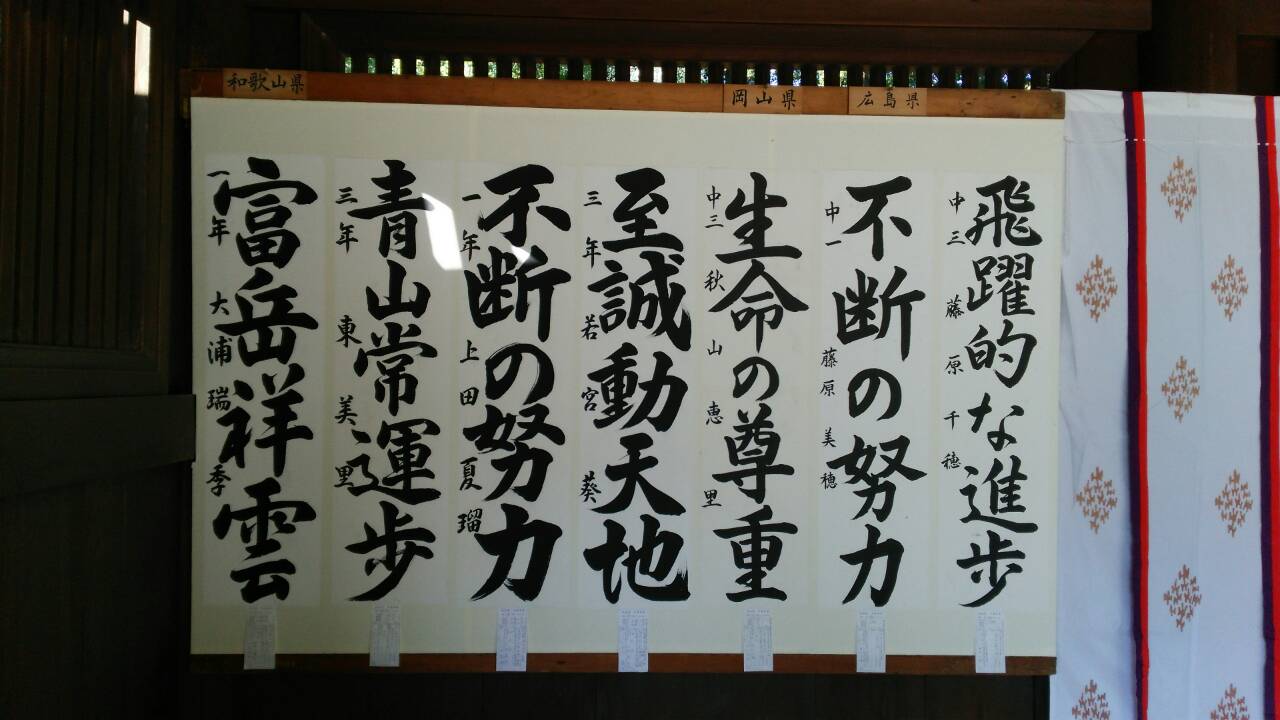 広島県
飛躍的な進歩
中三 藤原千穂
不断の努力
中一 藤原美穂
岡山県
生命の尊重
中三 秋山恵里
至誠動天地
三年 若宮葵
不断の努力
一年 上田夏瑠
青山常運歩
三年 東美里
和歌山県
富岳祥雲
一年 大浦瑞季